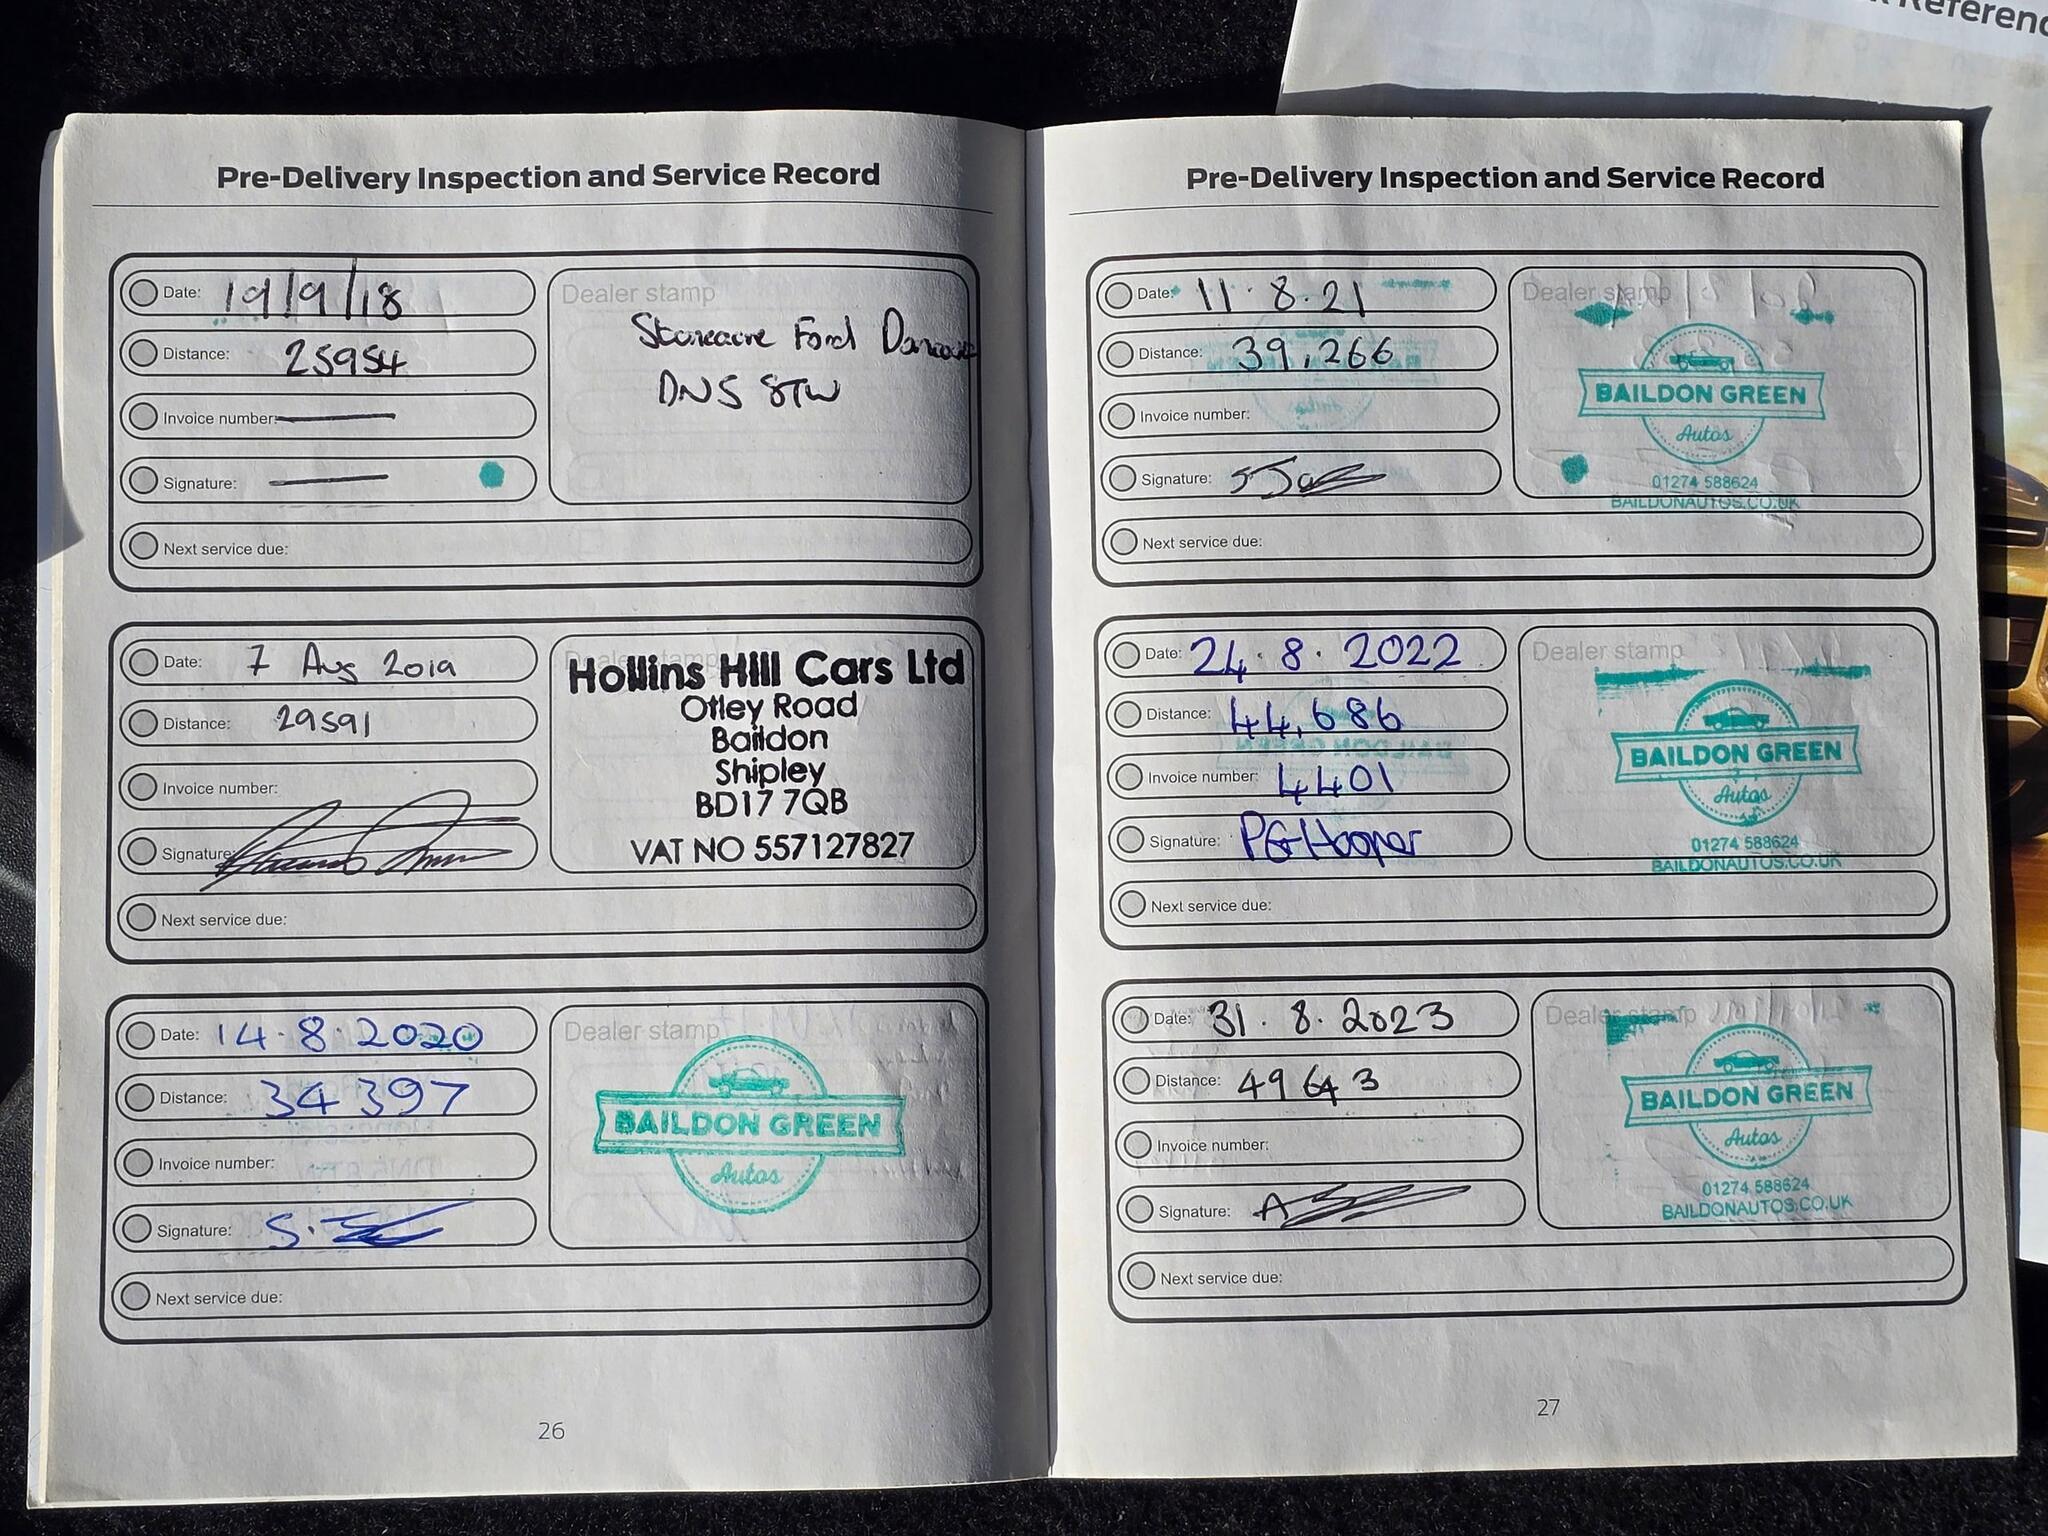 Reference
Pre-Delivery Inspection and Service Record
Date: 19/9/18
Distance: 25954
Invoice number:
Signature:
Next service due:
Dealer stamp
Stoneacre Ford Doncaster
DN5 8TW
Date: 7 Aug 2019
Distance: 29591
Invoice number:
Signature:
Next service due:
Dealer stamp
Hollins Hill Cars Ltd
Otley Road
Baildon
Shipley
BD17 7QB
VAT NO 557127827
Date: 14.8.2020
Distance: 34397
Invoice number:
Signature:
Next service due:
Dealer stamp
BAILDON GREEN
Autos
26
Pre-Delivery Inspection and Service Record
Date: 11.8.21
Distance: 39,266
Invoice number:
Signature:
Next service due:
Dealer stamp
BAILDON GREEN
Autos
01274 588624
BAILDONAUTOS.CO.UK
Date: 24.8.2022
Distance: 44,686
Invoice number: 4401
Signature: PG Hooper
Next service due:
Dealer stamp
BAILDON GREEN
Autos
01274 588624
BAILDONAUTOS.CO.UK
Date: 31.8.2023
Distance: 49643
Invoice number:
Signature:
Next service due:
Dealer stamp
BAILDON GREEN
Autos
01274 588624
BAILDONAUTOS.CO.UK
27